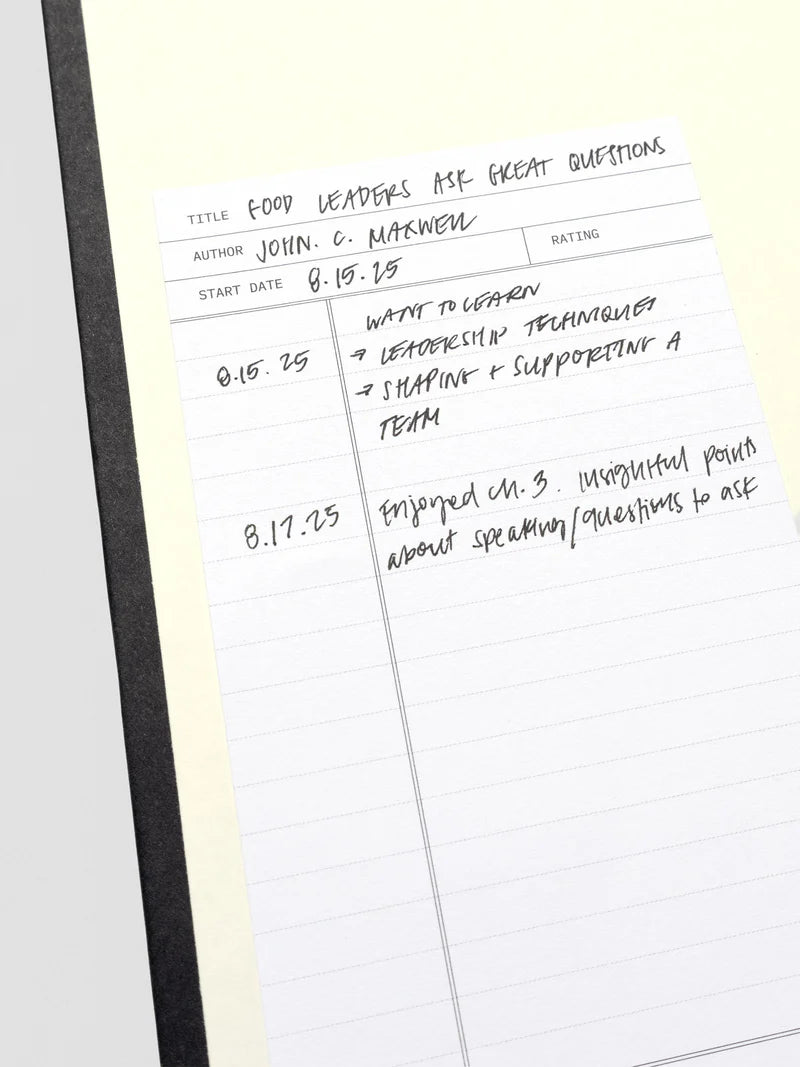 TITLE GOOD LEADERS ASK GREAT QUESTIONS
AUTHOR JOHN. C. MAXWELL
RATING
START DATE 8.15.25
WANT TO LEARN
8.15.25 → LEADERSHIP TECHNIQUES
→ SHAPING + SUPPORTING A
TEAM
8.17.25 Enjoyed ch. 3. Insightful points
about speaking/questions to ask